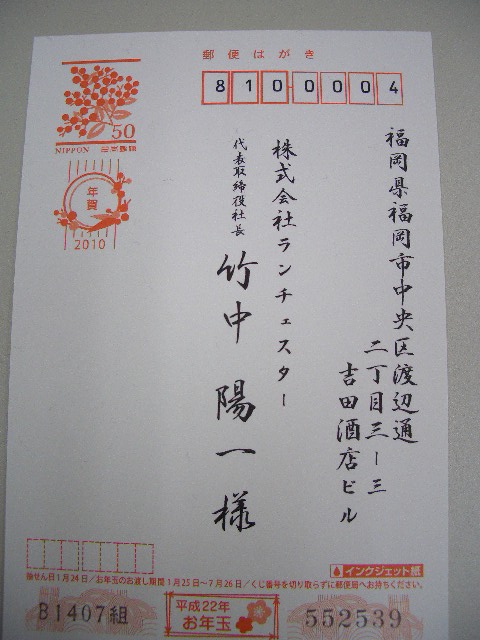 郵便はがき
810-0004
50
NIPPON 日本郵便
年賀
2010
福岡県福岡市中央区渡辺通
二丁目三ー三
吉田酒店ビル
株式会社ランチェスター
代表取締役社長
竹中 陽一 様
インクジェット紙
抽せん日1月24日/お年玉のお渡し期間1月25日〜7月26日/くじ番号を切り取らずに郵便局へお持ちください。
B1407組
平成22年
お年玉
552539